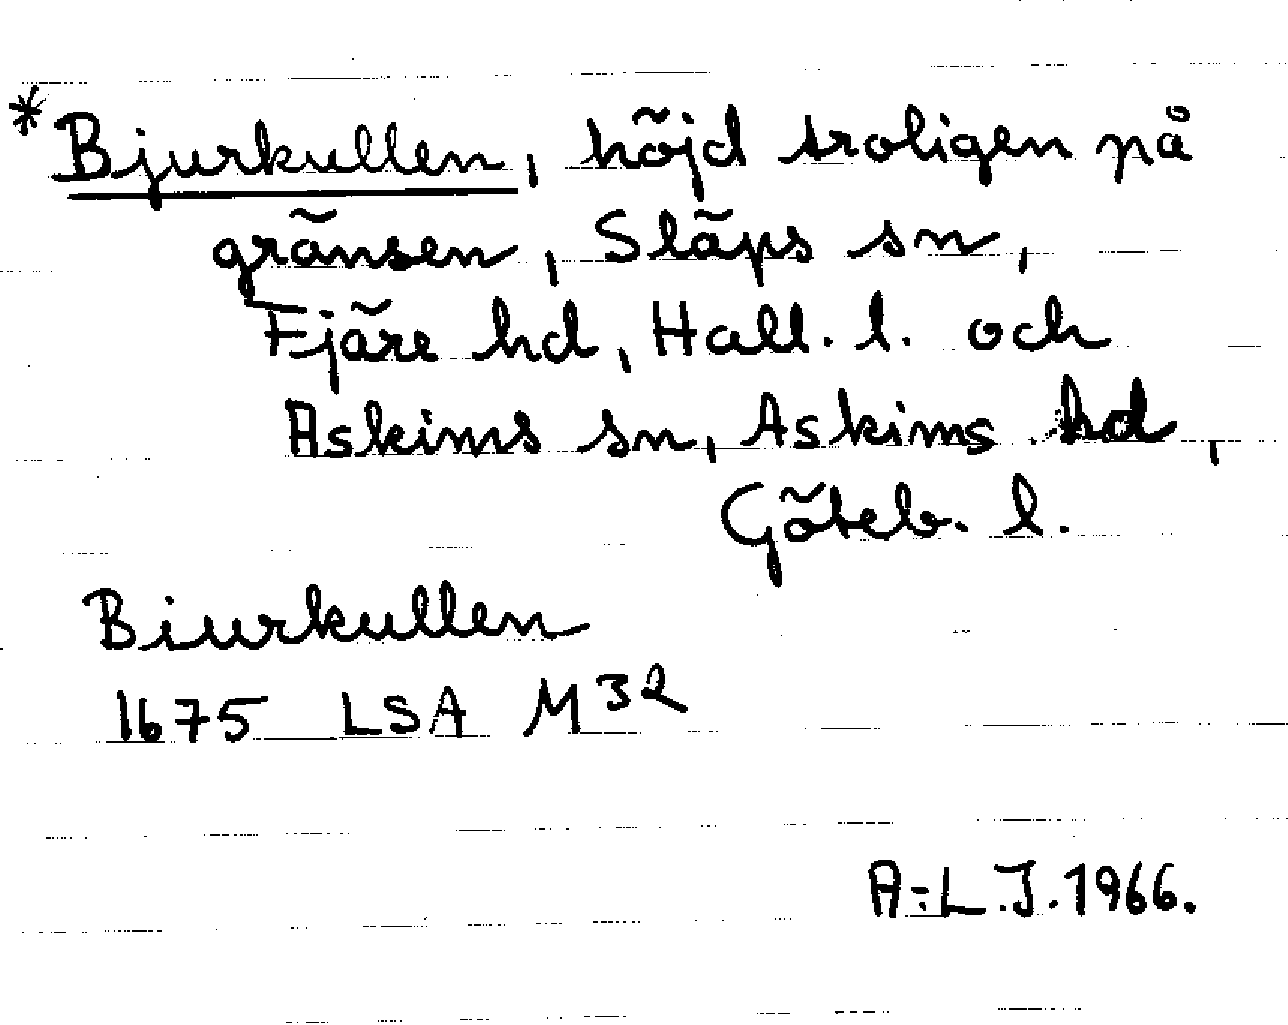 *Bjurkullen, höjd troligen på
gränsen, Släps sn,
Fjäre hd, Hall. l. och
Askims sn, Askims hd,
Göteb. l.
Biurkullen
1675 LSA M32
A-L.J. 1966.